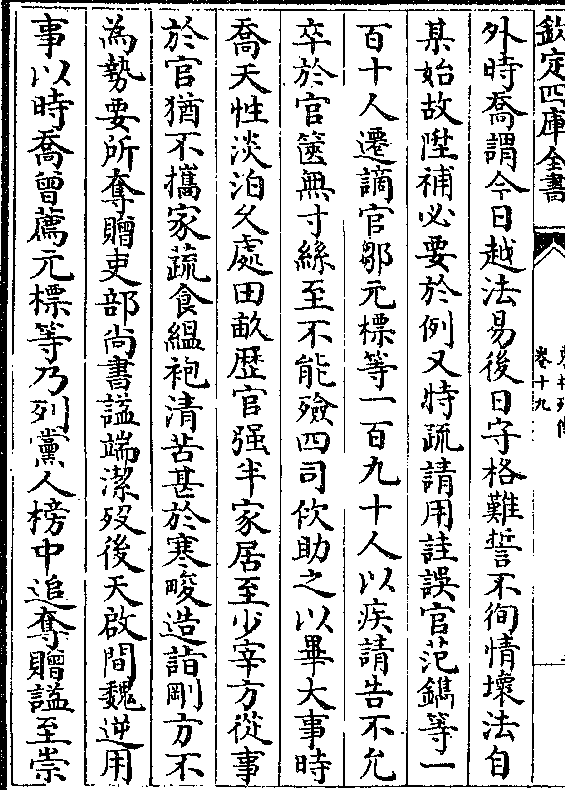 欽定四庫全書
卷十九
外時喬謂今日越法易後日守格難誓不徇情壞法自
某始故陞補必要於例又特疏請用詿誤官范鑴等一
百十人遷謫官鄒元標等一百九十人以疾請告不允
卒於官篋無寸絲至不能殮四司佽助之以畢大事時
喬天性淡泊久處田畝歴官强半家居至少宰方從事
於官猶不攜家蔬食緼袍清苦甚於寒畯造詣剛方不
為勢要所奪贈吏部尚書諡端潔歿後天啟間魏逆用
事以時喬曾薦元標等乃列黨人榜中追奪贈諡至崇